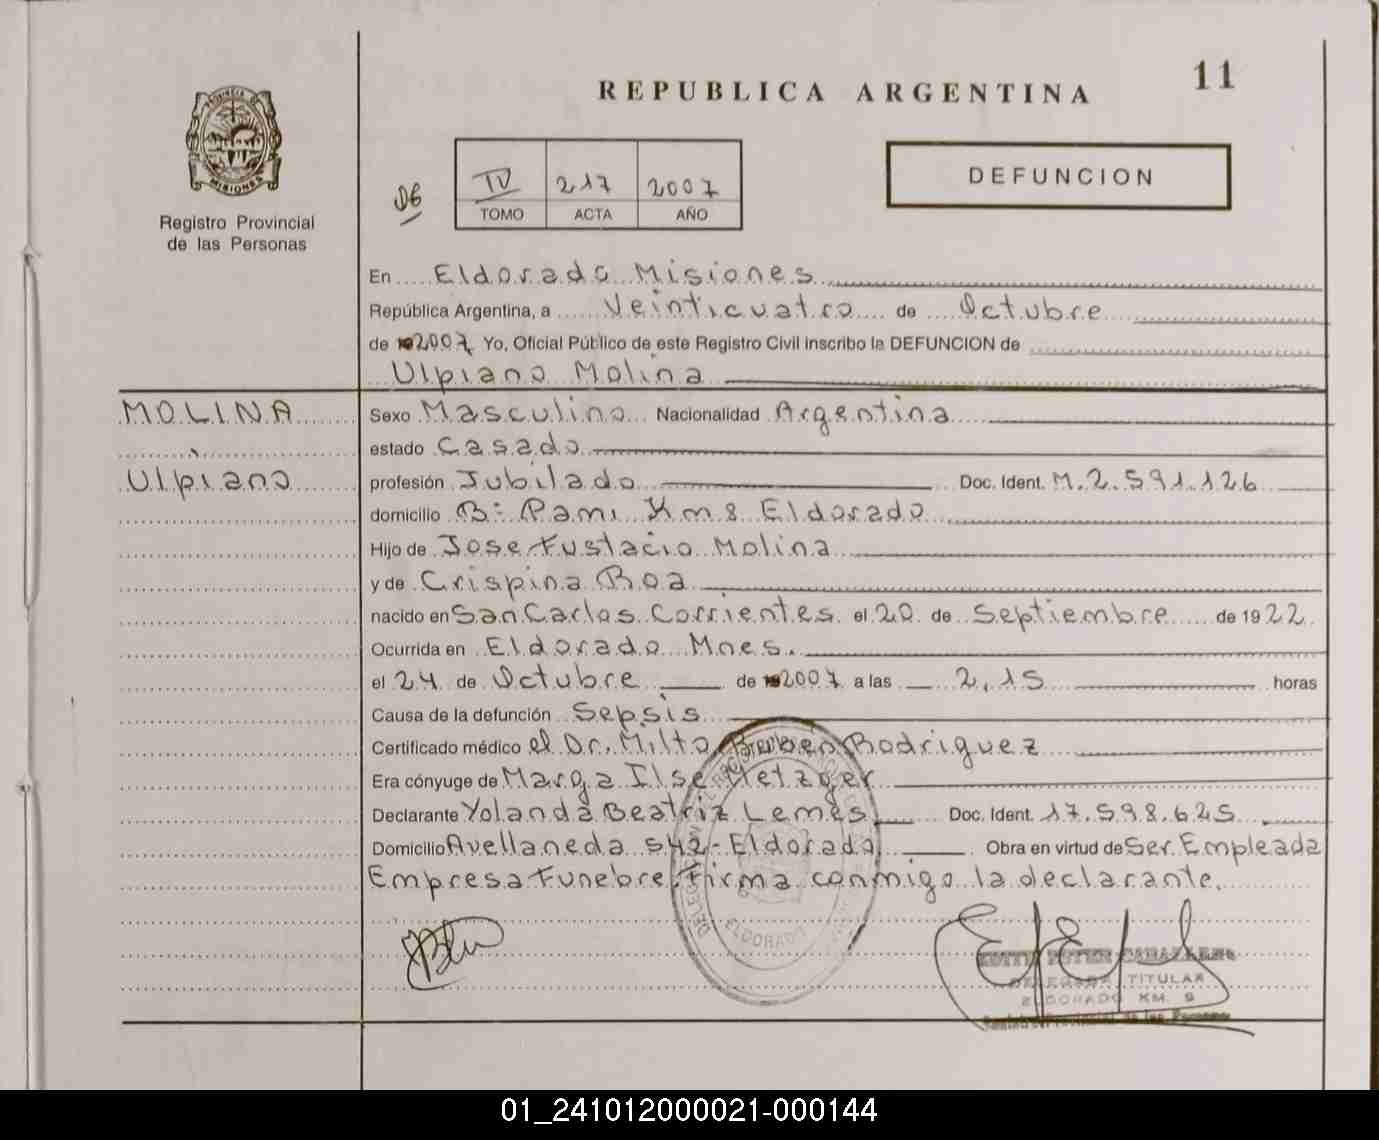 11
REPUBLICA ARGENTINA
DEFUNCION
PROVINCIA DE
MISIONES
Registro Provincial
de las Personas
D6
IV 217 2007
TOMO ACTA AÑO
En Eldorado Misiones
República Argentina, a Veinticuatro de Octubre
de 2007 Yo, Oficial Público de este Registro Civil inscribo la DEFUNCION de
Ulpiano Molina
MOLINA
Ulpiano
Sexo Masculino Nacionalidad Argentina
estado Casado
profesión Jubilado Doc. Ident. M.2.591.126
domicilio B: Pami Km 8 Eldorado
Hijo de Jose Eustacio Molina
y de Crispina Boa
nacido en San Carlos Corrientes el 20 de Septiembre de 1922
Ocurrida en Eldorado Mnes.
el 24 de Octubre de 2007 a las 2,15 horas
Causa de la defunción Sepsis
Certificado médico el Dr. Milto Ruben Rodriguez
Era cónyuge de Marga Ilse Metzger
Declarante Yolanda Beatriz Lemes Doc. Ident. 17.598.625
Domicilio Avellaneda 542-Eldorado Obra en virtud de Ser Empleada
Empresa Funebre. Firma conmigo la declarante.
ELDORADO
TITULAR
ELDORADO KM. 9
Registro Provincial de las Personas
01_241012000021-000144